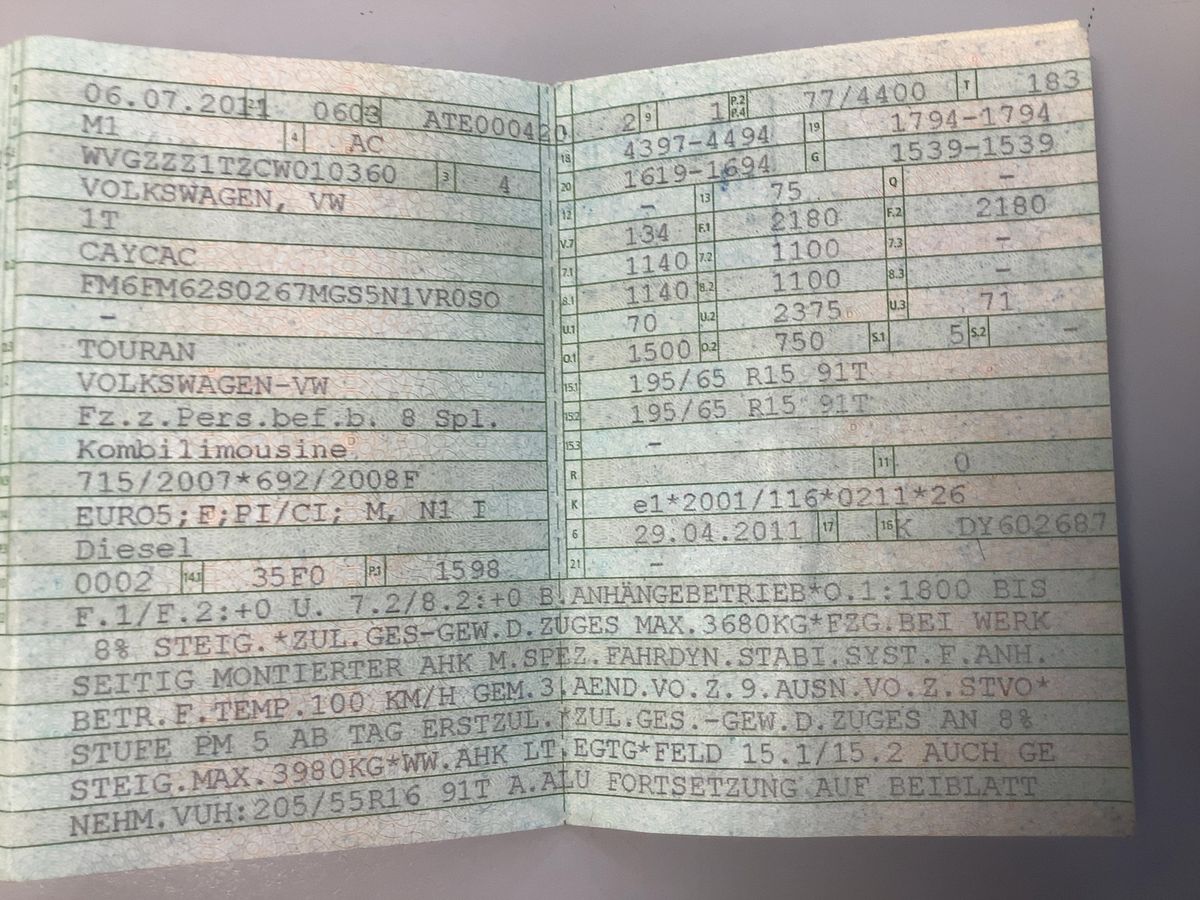 06.07.2011 2.1 0603 ATE000420
M1 4 AC
WVGZZZ1TZCW010360 3 4
VOLKSWAGEN, VW
1T
CAYCAC
FM6FM62S0267MGS5N1VR0S0
–
TOURAN
VOLKSWAGEN-VW
Fz.z.Pers.bef.b. 8 Spl.
Kombilimousine
715/2007*692/2008F
EURO5;F;PI/CI; M, N1 I
Diesel
0002 14.1 35F0 P.1 1598
L 2 9 1 P.2 P.4 77/4400 T 183
18 4397-4494 19 1794-1794
20 1619-1694 G 1539-1539
12 – 13 75 Q –
V.7 134 F.1 2180 F.2 2180
7.1 1140 7.2 1100 7.3 –
8.1 1140 8.2 1100 8.3 –
U.1 70 U.2 2375 U.3 71
O.1 1500 O.2 750 S.1 5 S.2 –
15.1 195/65 R15 91T
15.2 195/65 R15 91T
15.3 –
R 11 0
K e1*2001/116*0211*26
6 29.04.2011 17 16 K DY602687
21 –
F.1/F.2:+0 U. 7.2/8.2:+0 B.ANHÄNGEBETRIEB*O.1:1800 BIS
8% STEIG.*ZUL.GES-GEW.D.ZUGES MAX.3680KG*FZG.BEI WERK
SEITIG MONTIERTER AHK M.SPEZ.FAHRDYN.STABI.SYST.F.ANH.
BETR.F.TEMP.100 KM/H GEM.3.AEND.VO.Z.9.AUSN.VO.Z.STVO*
STUFE PM 5 AB TAG ERSTZUL.*ZUL.GES.-GEW.D.ZUGES AN 8%
STEIG.MAX.3980KG*WW.AHK LT.EGTG*FELD 15.1/15.2 AUCH GE
NEHM.VUH:205/55R16 91T A.ALU FORTSETZUNG AUF BEIBLATT